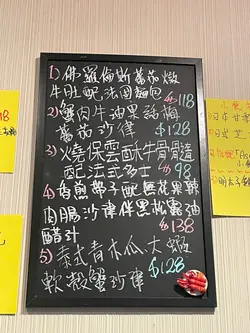 1) 佛羅倫斯蕃茄燉
牛肚配法国麵包
$118
2) 蟹肉牛油果話梅
蕃茄沙律
$128
3) 燒保雲酥牛骨髓
配法式多士 $98
4) 香煎帶子配無花果辣
肉腸沙律伴黑松露油
醋汁 $138
5) 泰式青木瓜大蝦
軟殼蟹沙律 $128